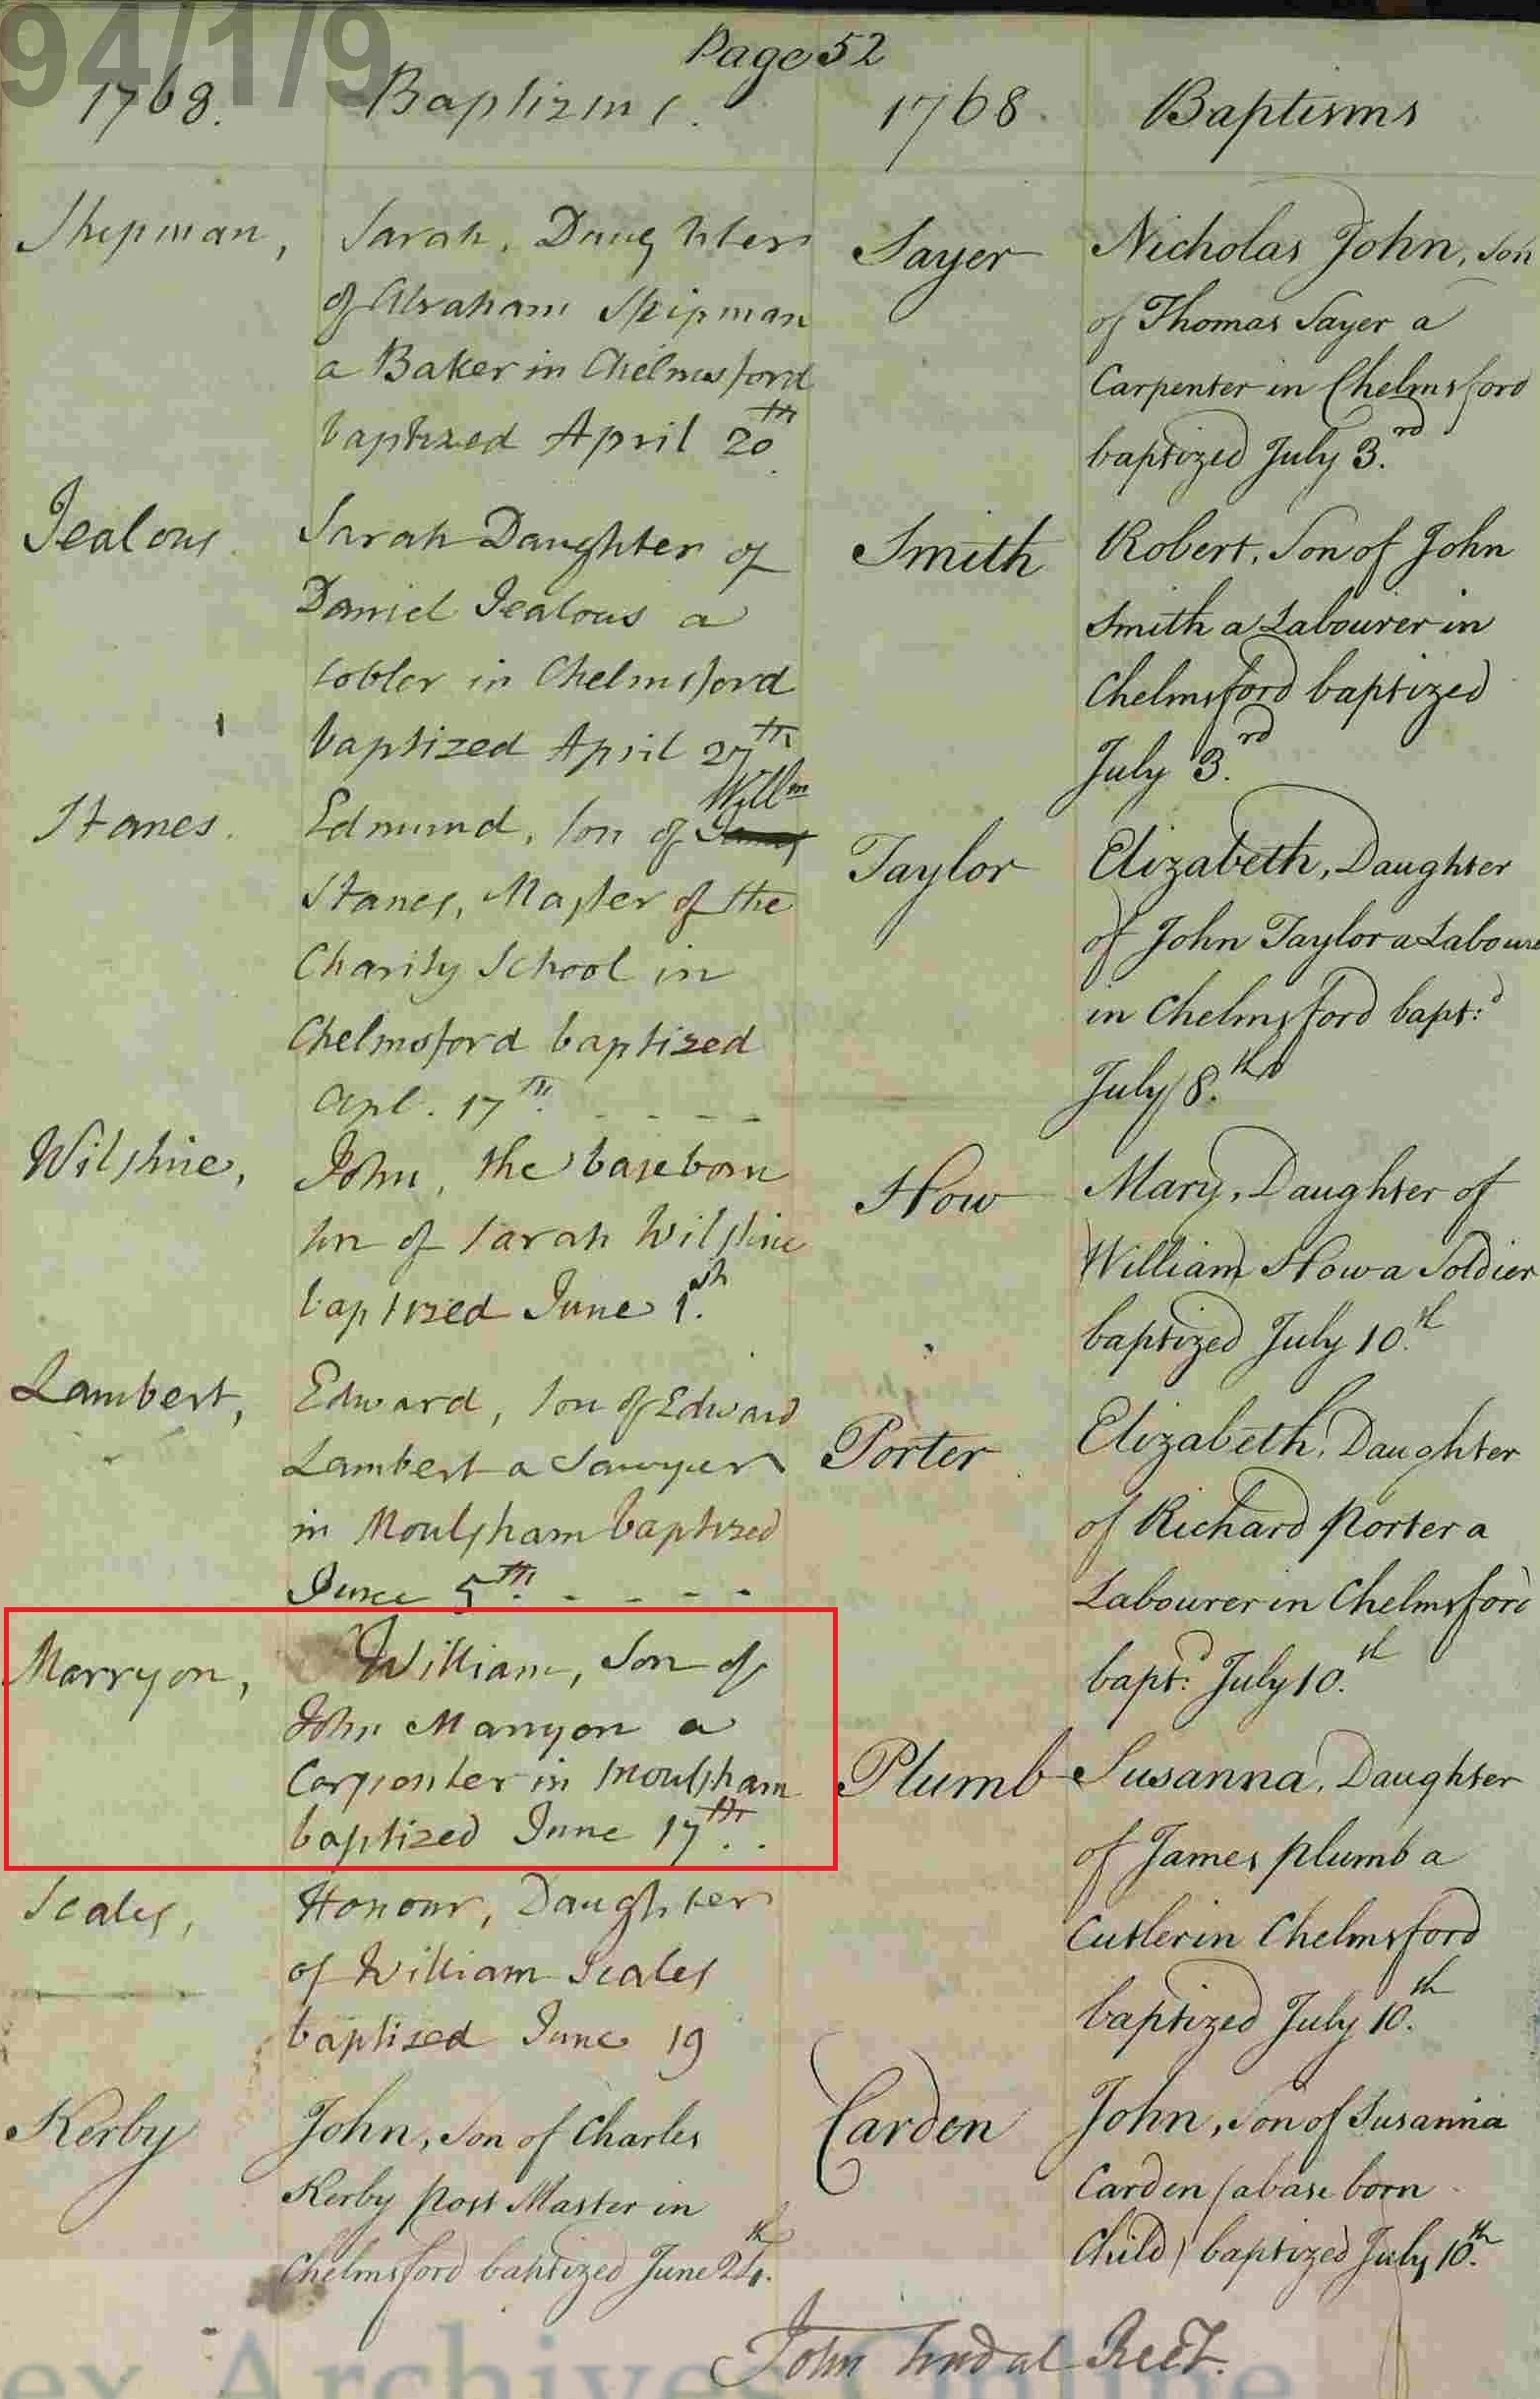 94/1/9
Page 52
1768. Baptizms.
Shipman,
Sarah, Daughter
of Abraham Shipman
a Baker in Chelmsford
baptized April 20th
Jealous
Sarah Daughter of
Daniel Jealous a
Cobler in Chelmsford
baptized April 27th
Stanes.
Willm
Edmund, Son of
Stanes, Master of the
Charity School in
Chelmsford baptized
Apl. 17th - - - -
Wilshire,
John, the baseborn
Son of Sarah Wilshire
baptized June 1st.
Lambert,
Edward, Son of Edward
Lambert a Sawyer
in Moulsham baptized
June 5th. - - - -
Marryon,
William, Son of
John Marryon a
Carpenter in Moulsham
baptized June 17th. .
Scales,
Honour, Daughter
of William Scales
baptized June 19
Kerby
John, Son of Charles
Kerby Post Master in
Chelmsford baptized June 24th.
1768. Baptisms
Sayer
Nicholas John, Son
of Thomas Sayer a
Carpenter in Chelmsford
baptized July 3.rd
Smith
Robert, Son of John
Smith a Labourer in
Chelmsford baptized
July 3.rd
Taylor
Elizabeth, Daughter
of John Taylor a Laboure
in Chelmsford bapt:d
July 8.th
How
Mary, Daughter of
William How a Soldier
baptized July 10.th
Porter
Elizabeth, Daughter
of Richard Porter a
Labourer in Chelmsford
bapt:d July 10.th
Plumb
Susanna, Daughter
of James Plumb a
Cutler in Chelmsford
baptized July 10.th
Carden
John, Son of Susanna
Carden (a base born
Child) baptized July 10.th
John Tindal Rect.
ex Archives Online